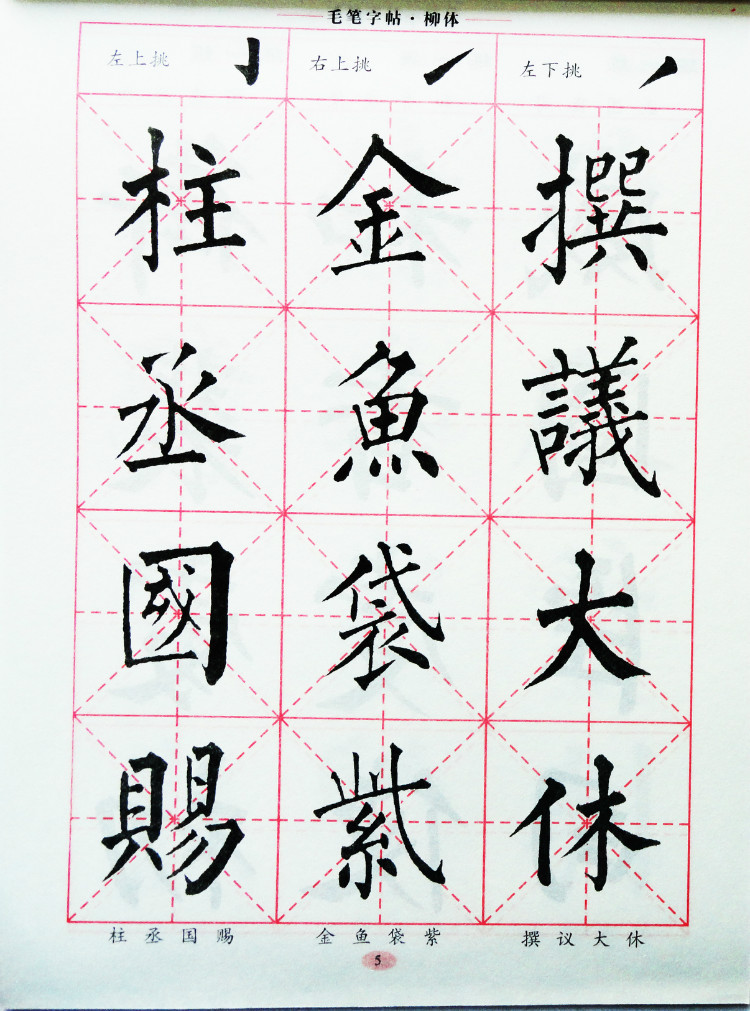 毛笔字帖·柳体
左上挑 右上挑 左下挑
柱 金 撰
丞 魚 議
國 袋 大
賜 紫 休
柱丞国赐 金鱼袋紫 撰议大休
5